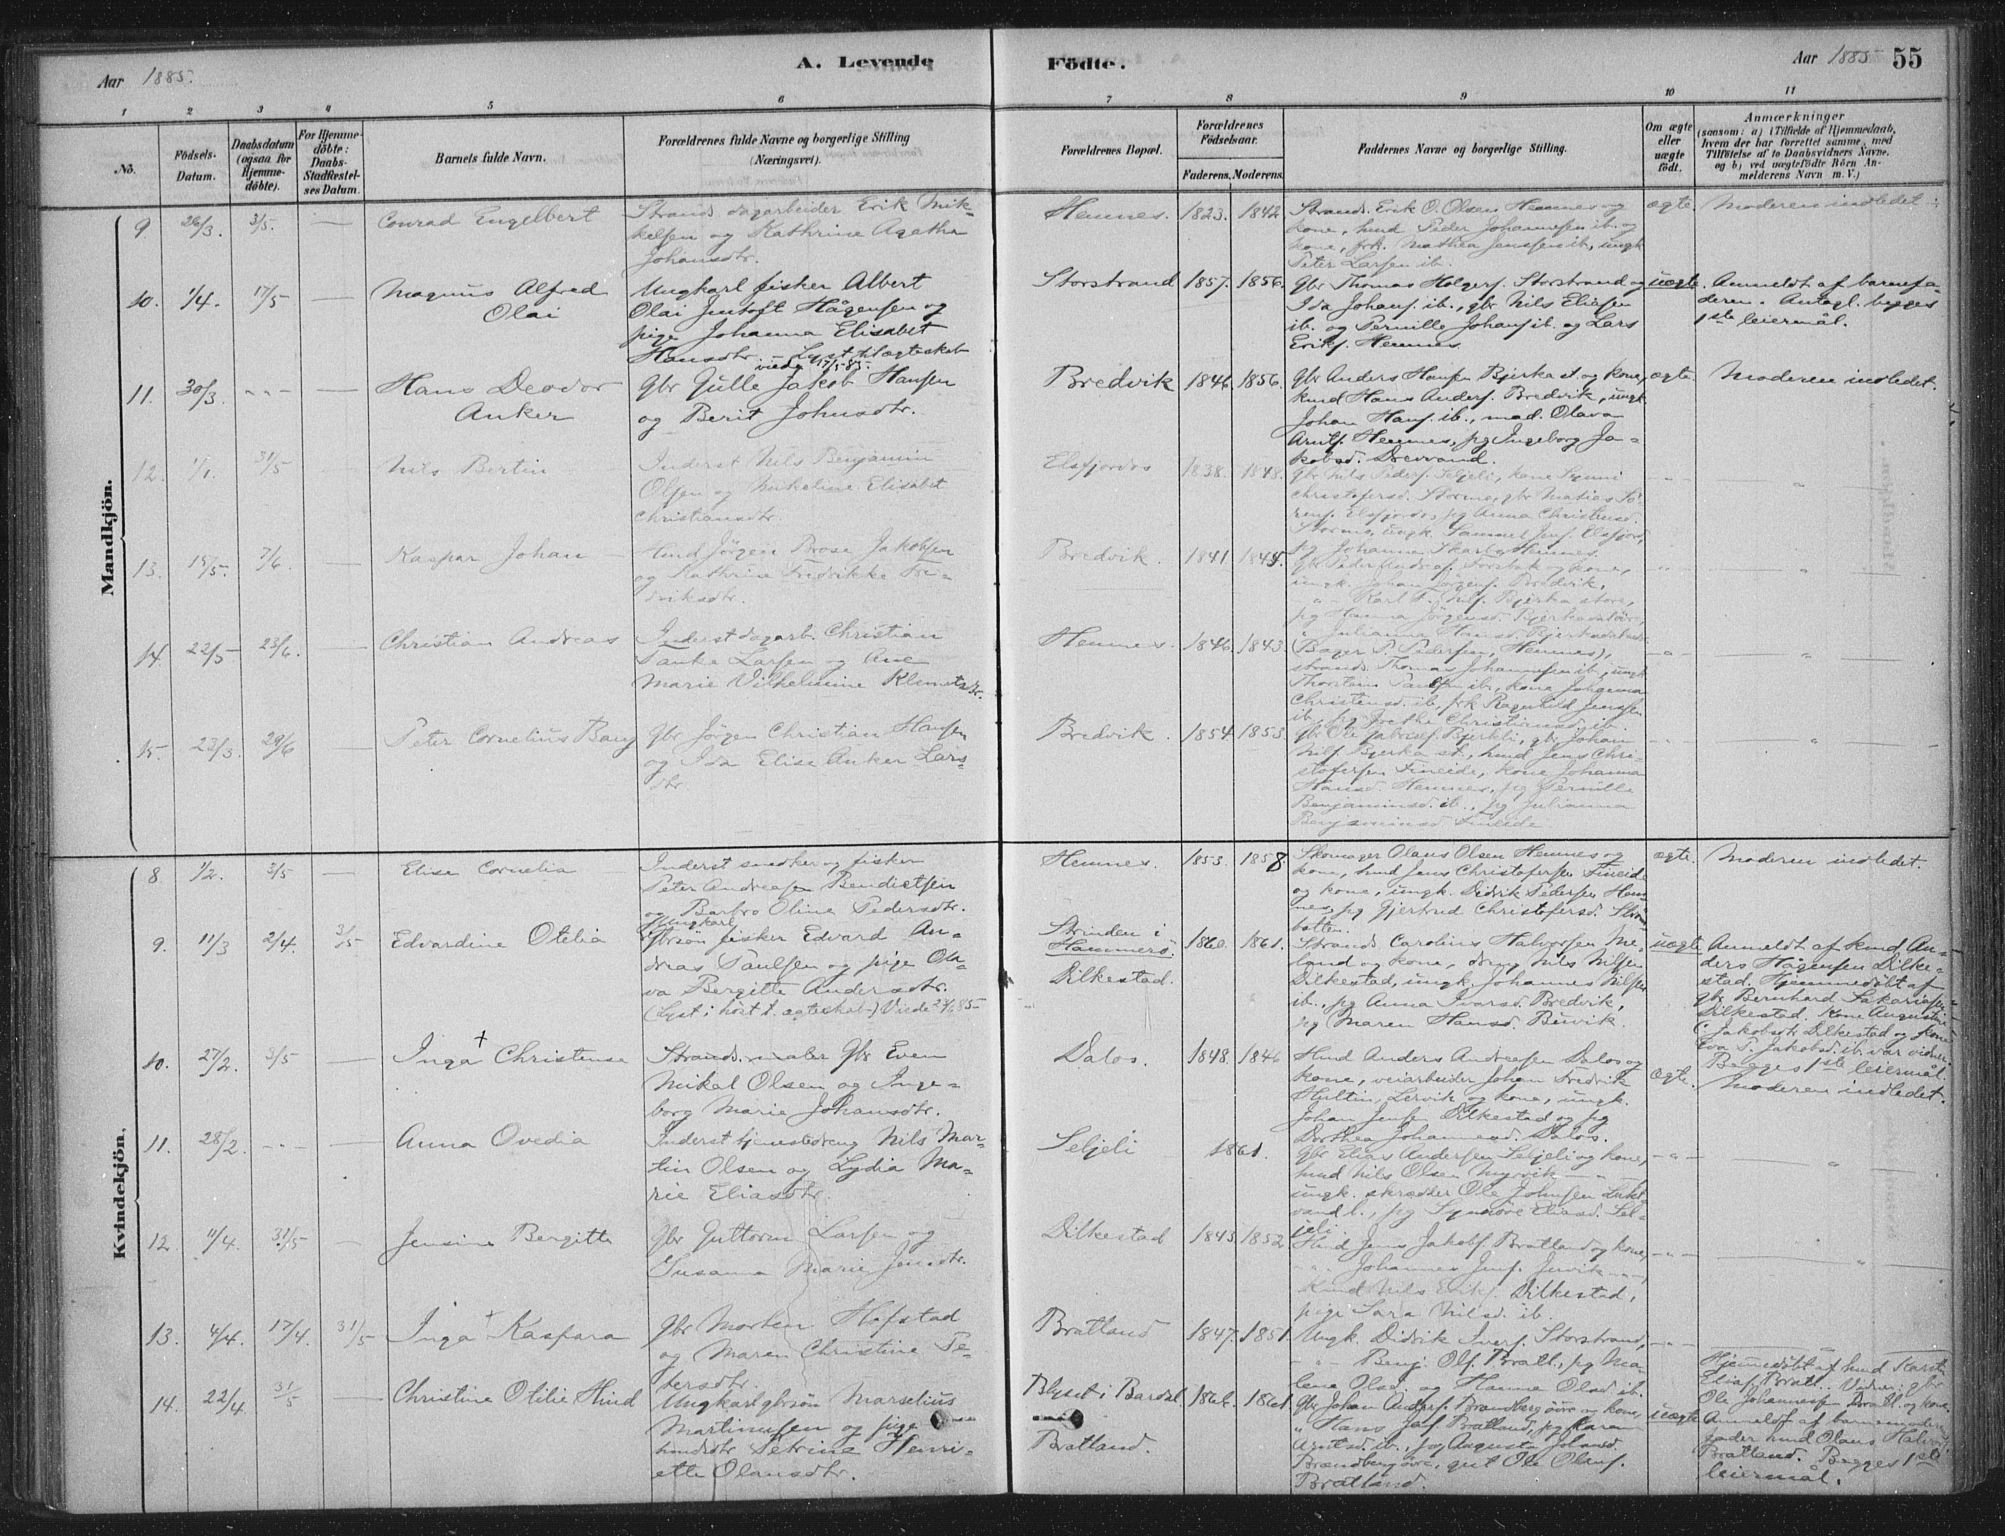 Aar 1885.
A. Levende
Födte.
Aar 1885
55
1 2 3 4 5 6 7 8 9 10 11
No.
Födsels-
Datum.
Daabsdatum
(ogsaa for
Hjemme-
döbte).
For Hjemme-
döbte:
Daabs-
Stadfæstel-
ses Datum.
Barnets fulde Navn.
Forældrenes fulde Navne og borgerlige Stilling
(Næringsvei).
Forældrenes Bopæl.
Forældrenes
Födselsaar.
Faderens. Moderens.
Faddernes Navne og borgerlige Stilling.
Om ægte
eller
uægte
födt.
Anmærkninger
(saasom: a) i Tilfælde af Hjemmedaab,
hvem der har forrettet samme, med
Tilföielse af to Daabsvidners Navne,
og b) ved uægtefödte Börn An-
melderens Navn m. V.)
Mandkjön.
9 26/3. 3/5. — Conrad Engelbert
Strands. dagarbeider Erik Mik-
kelsen og Kathrine Agatha
Johansdtr.
Hemnes. 1823. 1842.
Strands. Erik O. Olsen Hemnes og
kone, hmd Peder Johannesen ib. og
kone, frk. Mathea Jenssen ib., ungk.
Peter Larsen ib.
ægte. Moderen indledet
10. 1/4. 17/5 — Magnus Alfred
Olai
Ungkarl fisker Albert
Olai Jentoft Hågensen og
pige Johanna Elisabet
Hansdtr. — Lyst til ægteskab
viede 17/5 85.
Storstrand 1857. 1856.
Gbr Thomas Holgers. Storstrand og
Ida Johans. ib., gbr Nils Eliasen
ib. og Pernille Johans. ib. og Lars
Eriks. Hemnes
uægte. Anmeldt af barnefa-
deren. Antagl. begges
1ste leiermål.
11. 30/3. -"- — Hans Deodor
Anker
Gbr Gulle Jakob Hansen
og Berit Johnsdtr.
Bredvik 1846. 1856.
Gbr Anders Hansen Bjerka st. og kone,
hmd Hans Anders. Bredvik, ungk.
Johan Hans. ib., mad. Olava
Arnts. Hemnes, pg Ingeborg Ja-
kobsd. Drevvand.
ægte. Moderen indledet.
12. 1/1. 31/5 — Nils Bertin
Inderst Nils Benjamin
Olsen og Nikoline Elisabet
Christiansdtr.
Elsfjordos 1838. 1848.
Gbr Nils Peders. Seljeli, kone Synni
Christofersd. Stormo, gbr Matias Sö-
rens. Elsfjordos, pg Anna Christensd.
Stormo, ungk. Samuel Jens. Elsfjord,
pg Johanna Hemnes.
-"- "
13. 15/5. 7/6. — Kaspar Johan —
Hmd Jörgen Prose Jakobsen
og Kathrine Fredrikke Fre-
driksdtr.
Bredvik. 1841. 1845.
Gbr Peder Andreas. Forsbak og kone,
ungk. Johan Jörgens. Bredvik,
-"- Karl F. Nils. Bjerka store,
pg Hanna Jörgensd.
" Julianna Hansd.
-"- "
14. 22/5 23/6. — Christian Andreas
Inderst dagarb. Christian
Tanke Larsen og Ane
Marie Vilhelmine Klemetsdtr.
Hemnes. 1846. 1843.
(Bager P. Pedersen, Hemnes),
strands. Thomas Johannesen ib., ungk.
Thorstein Paulsen ib., kone Johanna
Christensd. ib., frk Ragnhild Jenssen
ib., pg Grethe Christiansd. ib.
-"- "
15. 23/3. 29/6 — Peter Cornelius Bang
Gbr Jörgen Christian Hansen
og Ida Elise Anker Lars-
dtr.
Bredvik. 1854. 1853.
Gbr Ole Jakobs. Bjerkli, gbr Johan
Nils. Bjerka st., hmd Jens Chri-
stofersen Fineide, kone Johanna
Hansd. Hemnes, pg Pernille
Benjaminsd. ib., pg Julianna
Benjaminsd. Fineide.
-"- "
Kvindekjön.
8. 1/2. 3/5 — Elise Cornelia
Inderst snedker og fisker
Peter Andreasen Bendictsen
og Barbro Oline Pedersdtr.
Hemnes. 1853. 1858
Skomager Olaus Olsen Hemnes og
kone, hmd Jens Christofersen Fineide
og kone, ungk. Didrik Pedersen Hem-
nes, pg Gjertrud Christofersd. Ström-
botten.
ægte. Moderen indledet.
9. 11/3 2/4. 3/5 Edvardine Otelia
Ungkarl
Gbrsön fisker Edvard An-
dreas Paulsen og pige Ola-
va Bergitte Andersdtr.
(Lyst i hört t. ægteskab) Viede 23/6 85
Strinden i
Hammerö.
Dilkestad. 1860. 1861.
Strands. Carolius Halvorsen Me-
land og kone, dreng Nils Nilsen
Dilkestad, ungk. Johannes Nilsen
ib., pg Anna Ivarsd. Bredvik,
pg Maren Hansd. Buvik.
uægte Anmeldt af hmd An-
ders Hågensen Dilke-
stad. Hjemmedöbt af
gbr Bernhard Sakariasen
Dilkestad. Kone Augusti-
C. Jakobsdtr Dilkestad og kone
Eva P. Jakobsd. ib. var vidner.
Begges 1ste leiermål.
10. 27/2. 3/5 — Inga + Christense
Strands. maler Gbr Even
Mikal Olsen og Inge-
borg Marie Johansdtr.
Dalos. 1848. 1846
Hmd Anders Andreasen Dalos og
kone, veiarbeider Johan Fredrik
Hultin, Lervik og kone, ungk.
Johan Jens. Dilkestad og pg
Dorthea Johannesd. Dalos.
ægte. Moderen indledet.
11. 28/2. -"- — Anna Ovedia
Inderst tjenestedreng Nils Mar-
tin Olsen og Lydia Ma-
rie Eliasdtr.
Seljeli 1861.
Gbr Elias Andersen Seljeli og kone,
hmd Nils Olsen Myrvik -"-
ungk. skrædder Ole Johnsen Lukt-
vand l., pg Synnöve Eliasd. Sel-
jeli.
-"- "
12. 11/4. 31/5 — Jensine Bergitte
Gbr Guttorm Larsen og
Susanna Marie Jensdtr.
Dilkestad 1843. 1852
Hmd Jens Jakobs. Bratland og kone,
-"- Johannes Jens. Jervik -"-,
hmd Nils Eriks. Dilkestad,
pige Sara Nilsd. ib.
-"- "
13. 4/4. 17/4. 31/5 Inga + Kaspara
Gbr Morten Hofstad
og Maren Christine Pe-
dersdtr.
Bratland 1847. 1851.
Ungk. Didrik Ivers. Storstrand,
-"- Benj. Ols. Bratl., pg Ma-
lene Olsd. og Hanna Olsd. ib.
-"- Hjemmedöbt af hmd Karsten
Elias. Bratl. Vidner: gbr
Ole Johannesen Bratl. og kone.
14. 22/4 31/5 — Christine Otilie Hind
Ungkarl gbrsön Marselius
Martinussen og pige
husmdtr Petrina Henri-
ette Olausdtr.
Blyset i Bardal.
Bratland. 1866. 1861.
Gbr Johan Anders. Brandberg övre og kone,
" Hans Jens. Bratland, pg Karen
Arntsd. ib., pg Augusta Johansd.
Brandberg övre, gut Ole Olaus.
Bratland.
uægte Anmeldt af barnemoderens
fader hmd Olaus Halvors.
Bratland. Begges 1ste
leiermål.